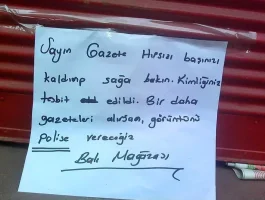 Sayın Gazete Hırsızı başınızı
kaldırıp sağa bakın. Kimliğiniz
tesbit edildi. Bir daha
gazeteleri alırsan, görüntünü
Polise vereceğiz
Balı Mağazası